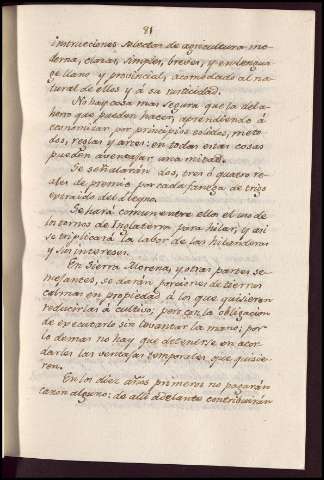 81
instrucciones selectas de agricultura mo-
derna, claras, simples, breves, y en lengua-
ge llano y provincial, acomodado al na-
tural de ellos y á su rusticidad.
No hay cosa mas segura que la de la
hero que pueden hacer, aprendiendo á
economizar por principios solidos, meto-
dos, reglas y artes: en todas estas cosas
pueden aventajar una mitad.
Se señalarán dos, tres ó quatro rea-
les de premio por cada fanega de trigo
extraido del Reyno.
Se hará comun entre ellos el uso de
los tornos de Inglaterra para hilar, y asi
se triplicará la labor de las hilanderas
y sus intereses.
En Sierra Morena, y otras partes se-
mejantes, se darán porciones de tierras
calmas en propiedad á los que quisieren
reducirlas á cultivo; pero con la obligacion
de executarlo sin levantar la mano: por
lo demas no hay que detenerse en acor-
darles las ventajas temporales que quisie-
ren.
En los diez años primeros no pagarán
canon alguno: de alli adelante contribuirán